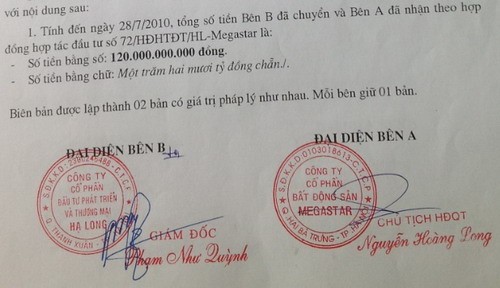 với nội dung sau:
1. Tính đến ngày 28/7/2010, tổng số tiền Bên B đã chuyển và Bên A đã nhận theo hợp
đồng hợp tác đầu tư số 72/HĐHTĐT/HL-Megastar là:
- Số tiền bằng số: 120.000.000.000 đồng.
- Số tiền bằng chữ: Một trăm hai mươi tỷ đồng chẵn./.
Biên bản được lập thành 02 bản có giá trị pháp lý như nhau. Mỗi bên giữ 01 bản.
ĐẠI DIỆN BÊN B
CÔNG TY
CỔ PHẦN
ĐẦU TƯ PHÁT TRIỂN
VÀ THƯƠNG MẠI
HẠ LONG
Q. THANH XUÂN
GIÁM ĐỐC
Phạm Như Quỳnh
ĐẠI DIỆN BÊN A
S.Đ.K.K.D:0103018613-C.T.C.P
CÔNG TY
CỔ PHẦN
BẤT ĐỘNG SẢN
MEGASTAR
Q. HAI BÀ TRƯNG - TP. HÀ NỘI
CHỦ TỊCH HĐQT
Nguyễn Hoàng Long